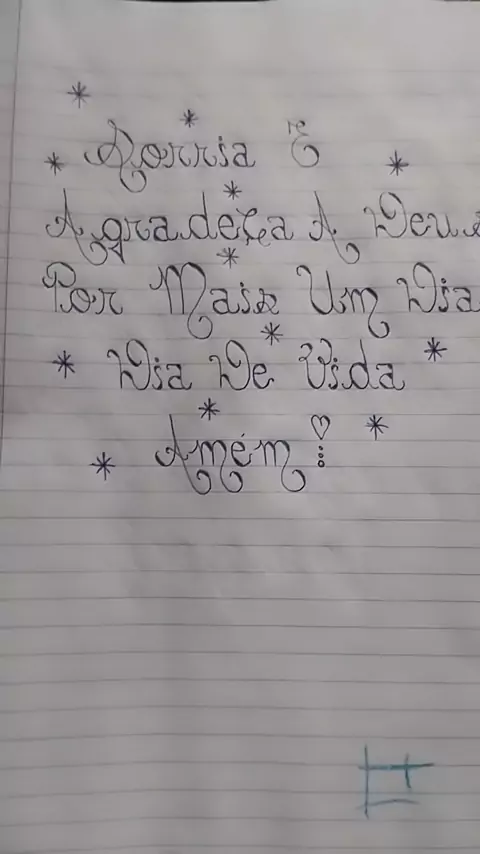 Sorria E
Agradeça A Deus
Por Mais Um Dia
Dia De Vida
Amém